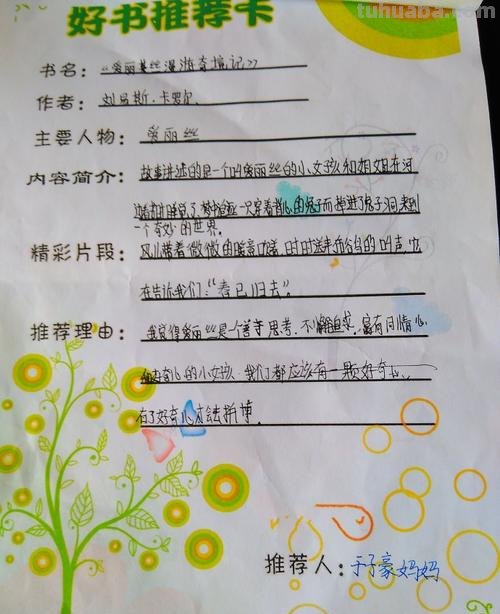 tuhuaba.com
好书推荐卡
书名：《爱丽丝漫游奇境记》
作者：刘易斯·卡罗尔
主要人物：爱丽丝
内容简介：故事讲述的是一个叫爱丽丝的小女孩和姐姐在河
边看书时睡着了，梦中追逐一只穿着背心的兔子而掉进了兔子洞，来到
一个奇妙的世界。
精彩片段：风儿带着微微的暖意吹着，时时送来布谷鸟的叫声，它
在告诉我们："春已归去"。
推荐理由：我觉得爱丽丝是个善于思考，不懈追求，富有同情心
好奇心的小女孩，我们都应该有一颗好奇心，
有了好奇心才去拼搏。
推荐人：于子豪妈妈